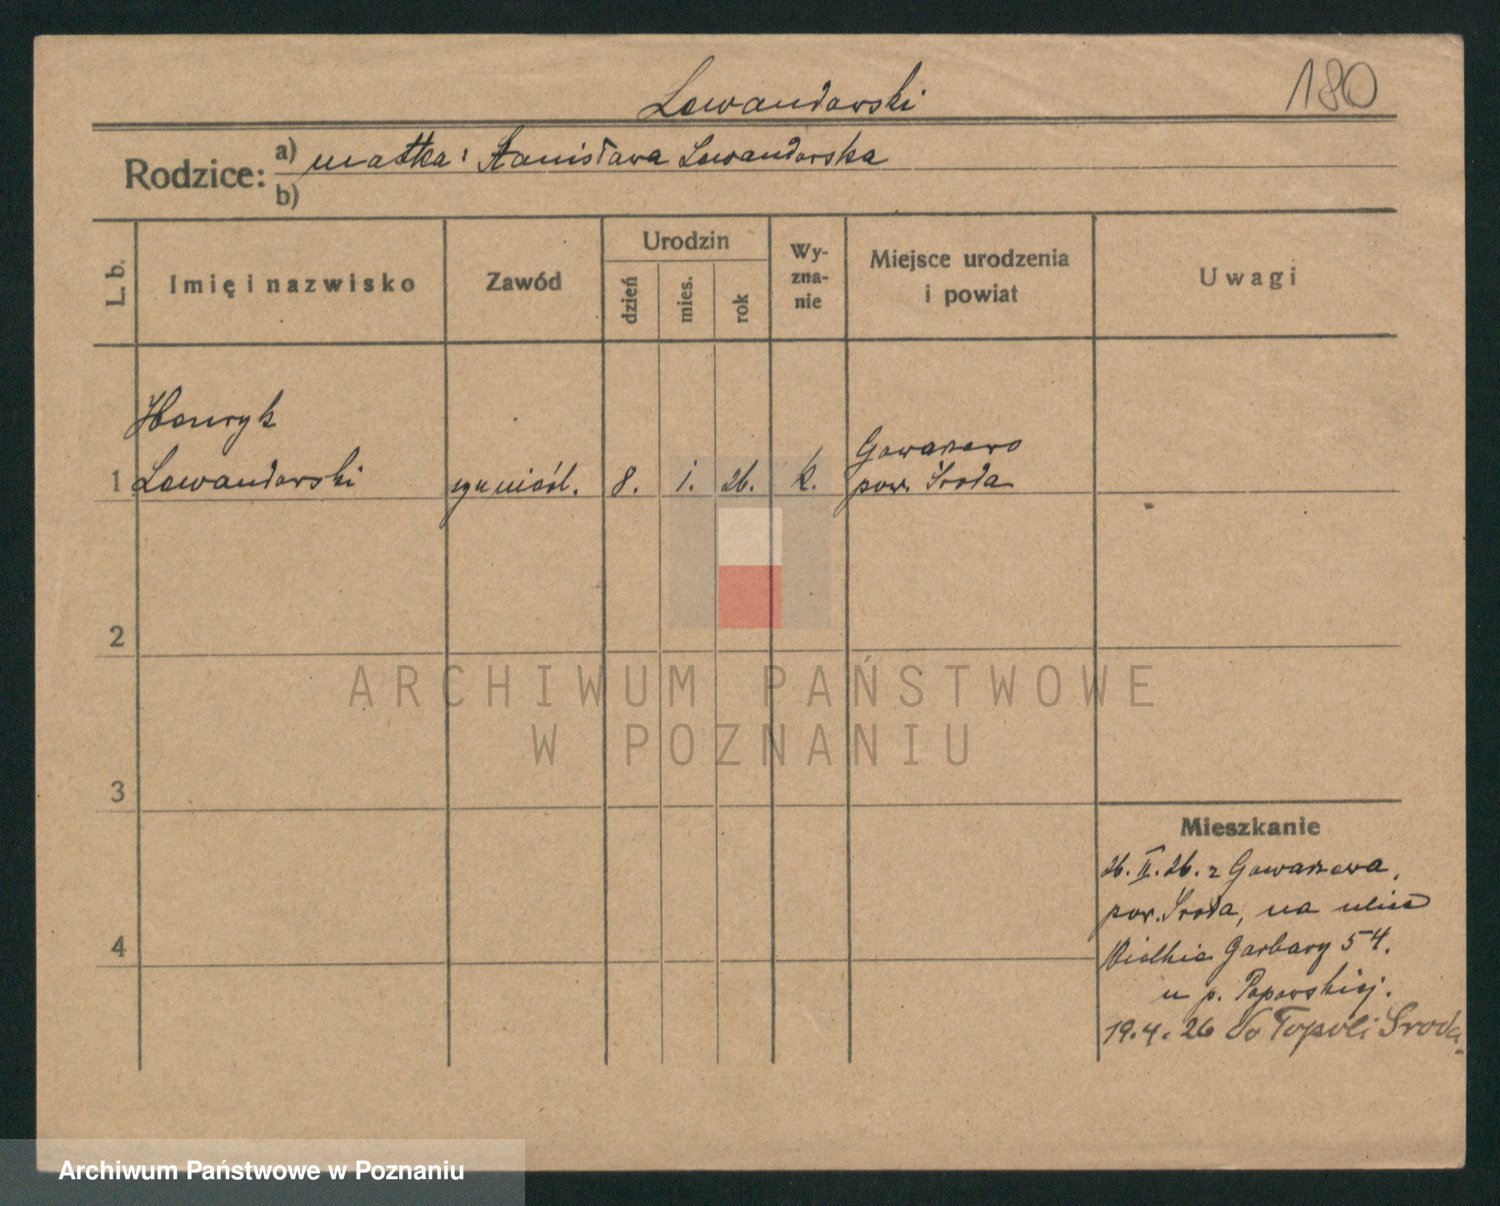 180
Lewandowski
Rodzice: a) matka: Stanisława Lewandowska
b)
L. b. Imię i nazwisko Zawód Urodzin dzień mies. rok Wy-zna-nie Miejsce urodzenia i powiat Uwagi
Henryk
1 Lewandowski 8. 1. 26. k. Gowarzewo
pow. Środa
2
3
4
Mieszkanie
26. II. 26. z Gowarzewa,
pow. Środa, na ulicę
Wielkie Garbary 54.
u p. Popowskiej.
19.4.26 do Topoli Środa
ARCHIWUM PAŃSTWOWE
W POZNANIU
Archiwum Państwowe w Poznaniu